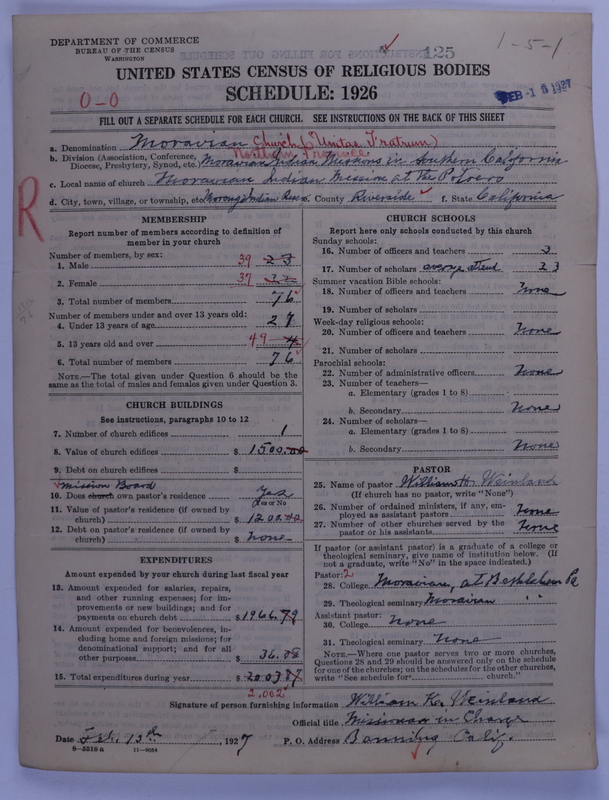 DEPARTMENT OF COMMERCE
BUREAU OF THE CENSUS
WASHINGTON
125
1-5-1
UNITED STATES CENSUS OF RELIGIOUS BODIES
SCHEDULE: 1926
0-0
FEB -1 5 1927
FILL OUT A SEPARATE SCHEDULE FOR EACH CHURCH. SEE INSTRUCTIONS ON THE BACK OF THIS SHEET
a. Denomination Moravian Church (Unitas Fratrum)
Northern Province
b. Division (Association, Conference, Diocese, Presbytery, Synod, etc.) Moravian Indian Missions in Southern California
c. Local name of church Moravian Indian Mission at the Potrero
R
d. City, town, village, or township, etc. Morongo Indian Res. e. County Riverside f. State California
MEMBERSHIP
Report number of members according to definition of
member in your church
Number of members, by sex:
1. Male 39
2. Female 37
3. Total number of members 76
Number of members under and over 13 years old:
4. Under 13 years of age 27
5. 13 years old and over 49
6. Total number of members 76
NOTE.—The total given under Question 6 should be the
same as the total of males and females given under Question 3.
CHURCH BUILDINGS
See instructions, paragraphs 10 to 12
7. Number of church edifices 1
8. Value of church edifices $ 1500.00
9. Debt on church edifices $
Mission Board
10. Does church own pastor's residence Yes
Yes or No
11. Value of pastor's residence (if owned by
church) $ 1200.00
12. Debt on pastor's residence (if owned by
church) $ none
EXPENDITURES
Amount expended by your church during last fiscal year
13. Amount expended for salaries, repairs,
and other running expenses; for im-
provements or new buildings; and for
payments on church debt $ 1966.79
14. Amount expended for benevolences, in-
cluding home and foreign missions; for
denominational support; and for all
other purposes $ 36.08
15. Total expenditures during year $
2,002
CHURCH SCHOOLS
Report here only schools conducted by this church
Sunday schools:
16. Number of officers and teachers 3
17. Number of scholars average attend 23
Summer vacation Bible schools:
18. Number of officers and teachers None
19. Number of scholars
Week-day religious schools:
20. Number of officers and teachers None
21. Number of scholars
Parochial schools:
22. Number of administrative officers None
23. Number of teachers—
a. Elementary (grades 1 to 8)
b. Secondary None
24. Number of scholars—
a. Elementary (grades 1 to 8)
b. Secondary None
PASTOR
25. Name of pastor William H. Weinland
(If church has no pastor, write "None")
26. Number of ordained ministers, if any, em-
ployed as assistant pastors None
27. Number of other churches served by the
pastor or his assistants None
If pastor (or assistant pastor) is a graduate of a college or
theological seminary, give name of institution below. (If
not a graduate, write "No" in the space indicated.)
Pastor: 2
28. College Moravian, at Bethlehem Pa
29. Theological seminary Moravian " "
Assistant pastor:
30. College None
31. Theological seminary None
NOTE.—Where one pastor serves two or more churches,
Questions 28 and 29 should be answered only on the schedule
for one of the churches; on the schedules for the other churches,
write "See schedule for church."
Signature of person furnishing information William H. Weinland
Official title Missionary in Charge
Date Feb. 13th, 1927 P. O. Address Banning Calif.
8-5518 a 11-9054